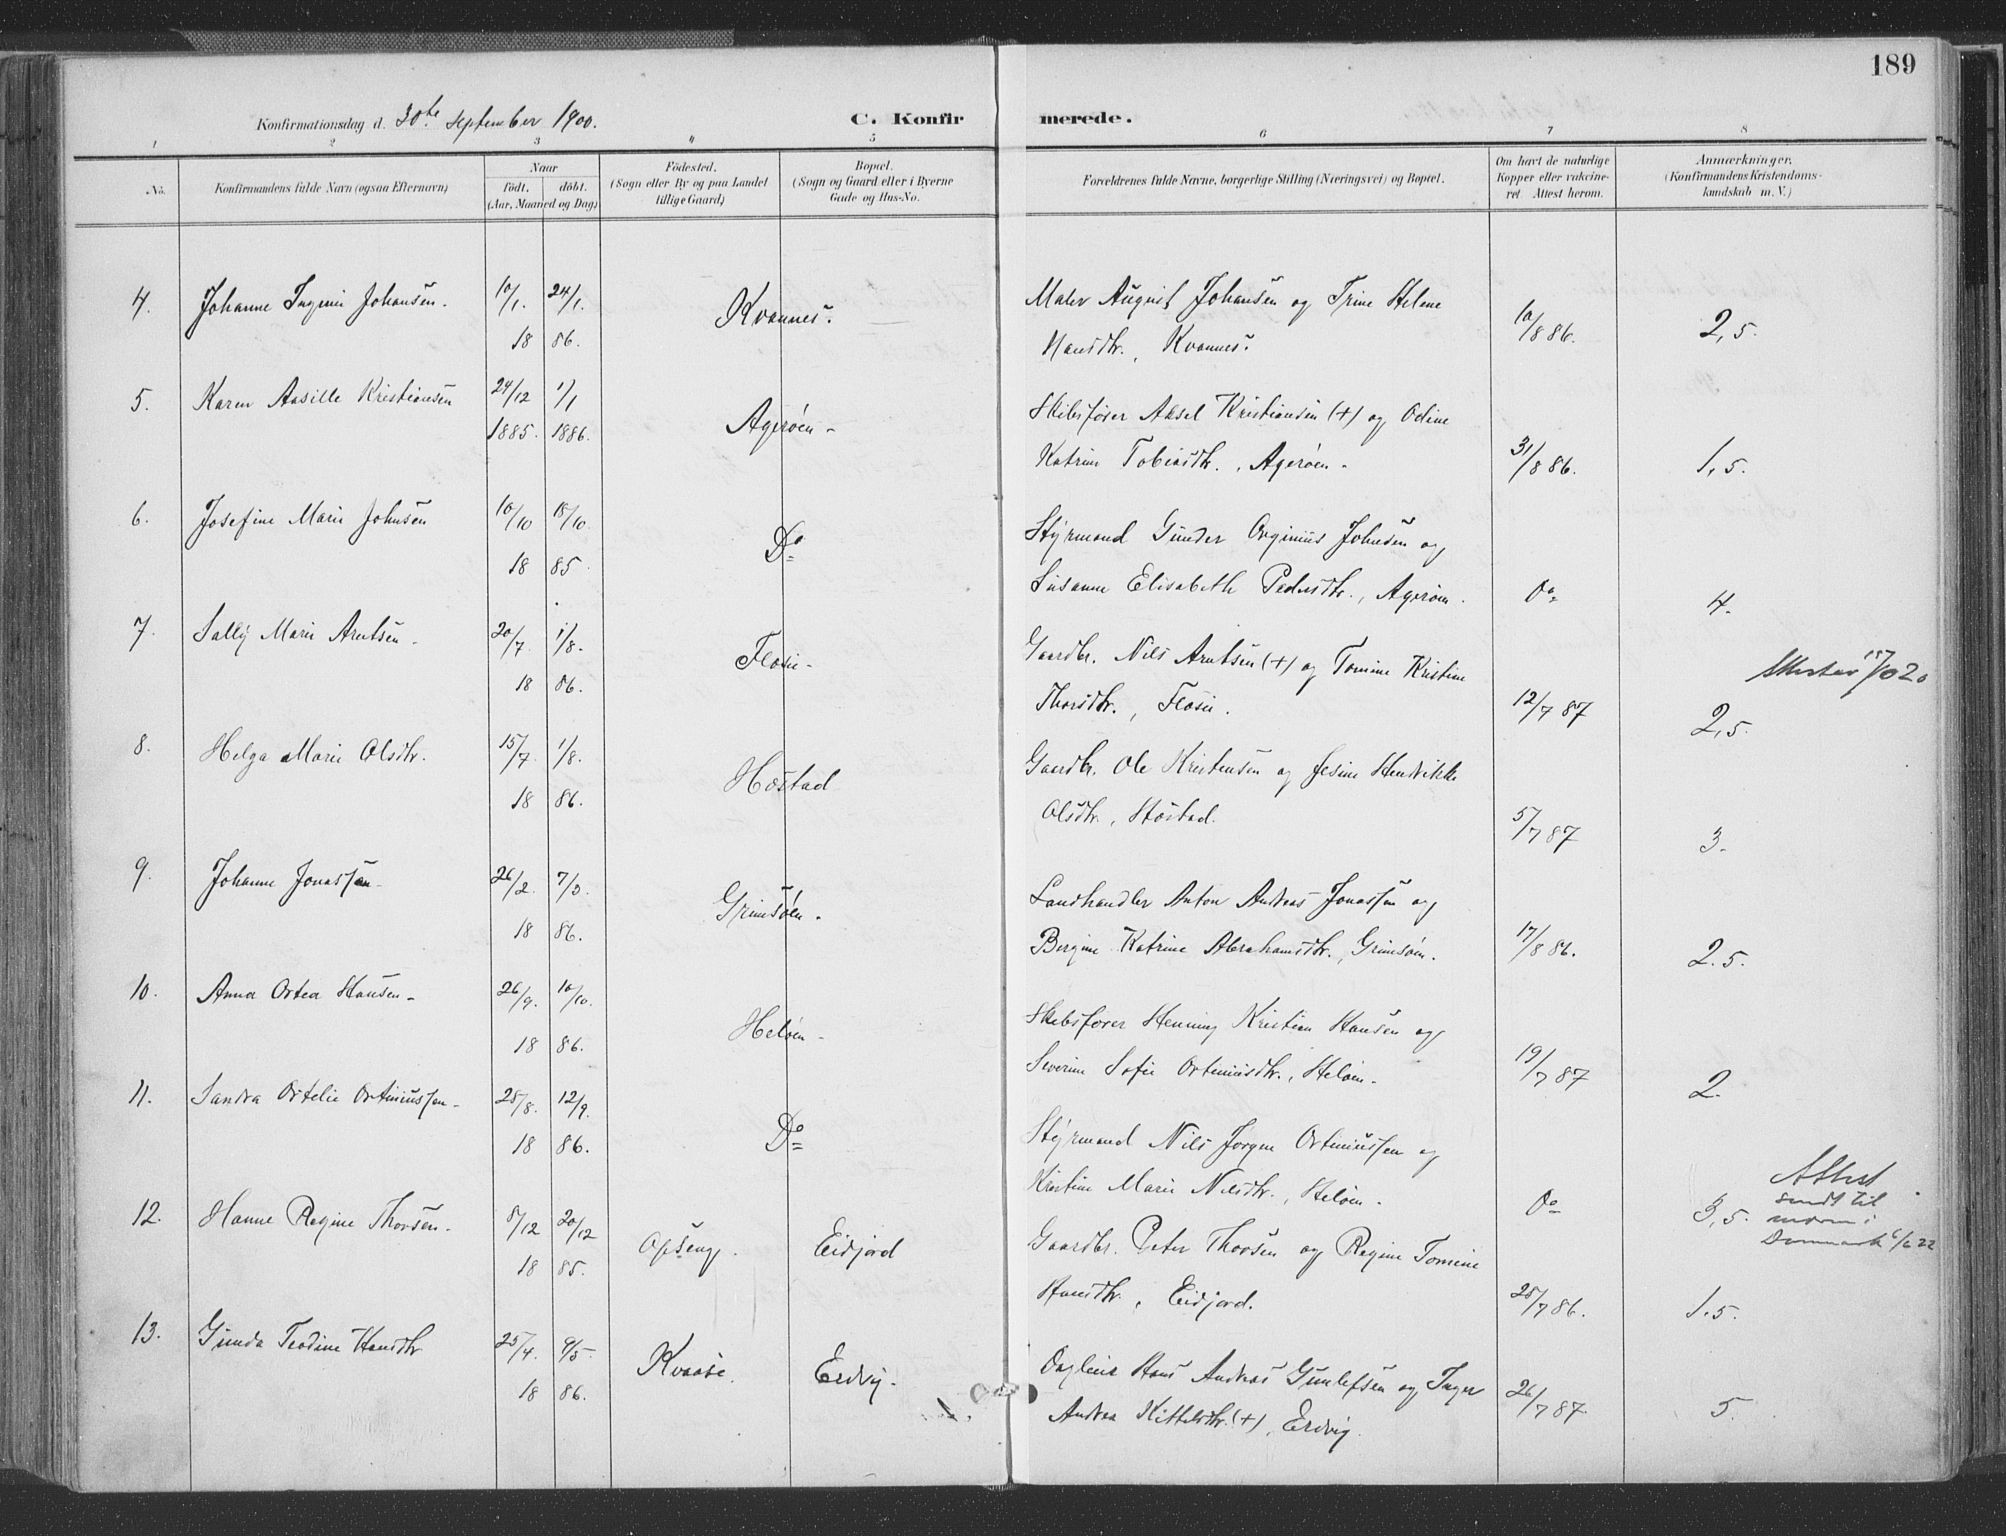 189
Konfirmationsdag d. 30te September 1900.
C. Konfirmerede.
1 2 3 4 5 6 7 8
No.
Konfirmandens fulde Navn (ogsaa Efternavn)
Naar
födt. döbt.
(Aar, Maaned og Dag)
Födested.
(Sogn eller By og paa Landet
tillige Gaard)
Bopæl.
(Sogn og Gaard eller i Byerne
Gade og Hus-No.
Forældrenes fulde Navne, borgerlige Stilling (Næringsvei) og Bopæl.
Om havt de naturlige
Kopper eller vakcine-
ret. Attest herom.
Anmærkninger.
(Konfirmandens Kristendoms-
kundskab m. V.)
4. Johanne Ingine Johansen. 10/1. 24/1. 18 86. Kvannes.
Maler August Johansen og Trine Helene
Hansdtr., Kvannes. 10/8 86. 2,5.
5. Karen Aasille Kristiansen 24/12 1885. 1/1 1886. Agerøen -
Skibsfører Aksel Kristiansen (+) og Odine
Katrine Tobiasdtr., Agerøen - 31/8 86. 1,5.
6. Josefine Marie Johnsen 10/10 18/10. 18 85. Do
Styrmand Gunder Orginius Johnsen og
Susanne Elisabeth Pedersdtr., Agerøen. Do 4.
7. Sally Marie Arntsen - 20/7. 1/8- 18 86. Flosie-
Gaardbr. Nils Arntsen (+) og Tomine Kristine
Thorsdtr., Flosie. 12/7 87 2,5.
8. Helga Marie Olsdtr. 15/7. 1/8. 18 86. Høstad
Gaardbr. Ole Kristensen og Jesine Hendrikke
Olsdtr., Høstad. 5/7 87 3.
9. Johanne Jonassen- 26/2. 7/3. 18 86. Grimsøen.
Landhandler Anton Andreas Jonassen og
Bergine Katrine Abrahamsdtr., Grimsøen. 17/8 86. 2.5.
10. Anna Ortea Hansen - 26/9. 10/10. 18 86. Heløen -
Skibsfører Henning Kristian Hansen og
Severine Sofie Ortiniusdtr., Heløen. 19/7 87 2.
11. Sandra Ortelie Ortiniussen - 28/8. 12/9. 18 86. Do
Styrmand Nils Jørgen Ortiniussen og
Kristine Marie Nilsdtr., Heløen - Do 3,5.
Attest
sendt til
i
Danmark 6/6 22
12. Hanne Regine Thorsen. 8/12 20/12 18 85. Opseng. Eidjord
Gaardbr. Peter Thorsen og Regine Tomine
Hansdtr., Eidjord. 28/7 86. 1.5.
13. Gunda Teodine Hansdtr 25/4. 9/5- 18 86. Kvaase. Eidvig-
Hans Andreas Gunlefsen og Inger
Andrea Kittelsdtr. (+), Eidvig. 26/7 87. 5.